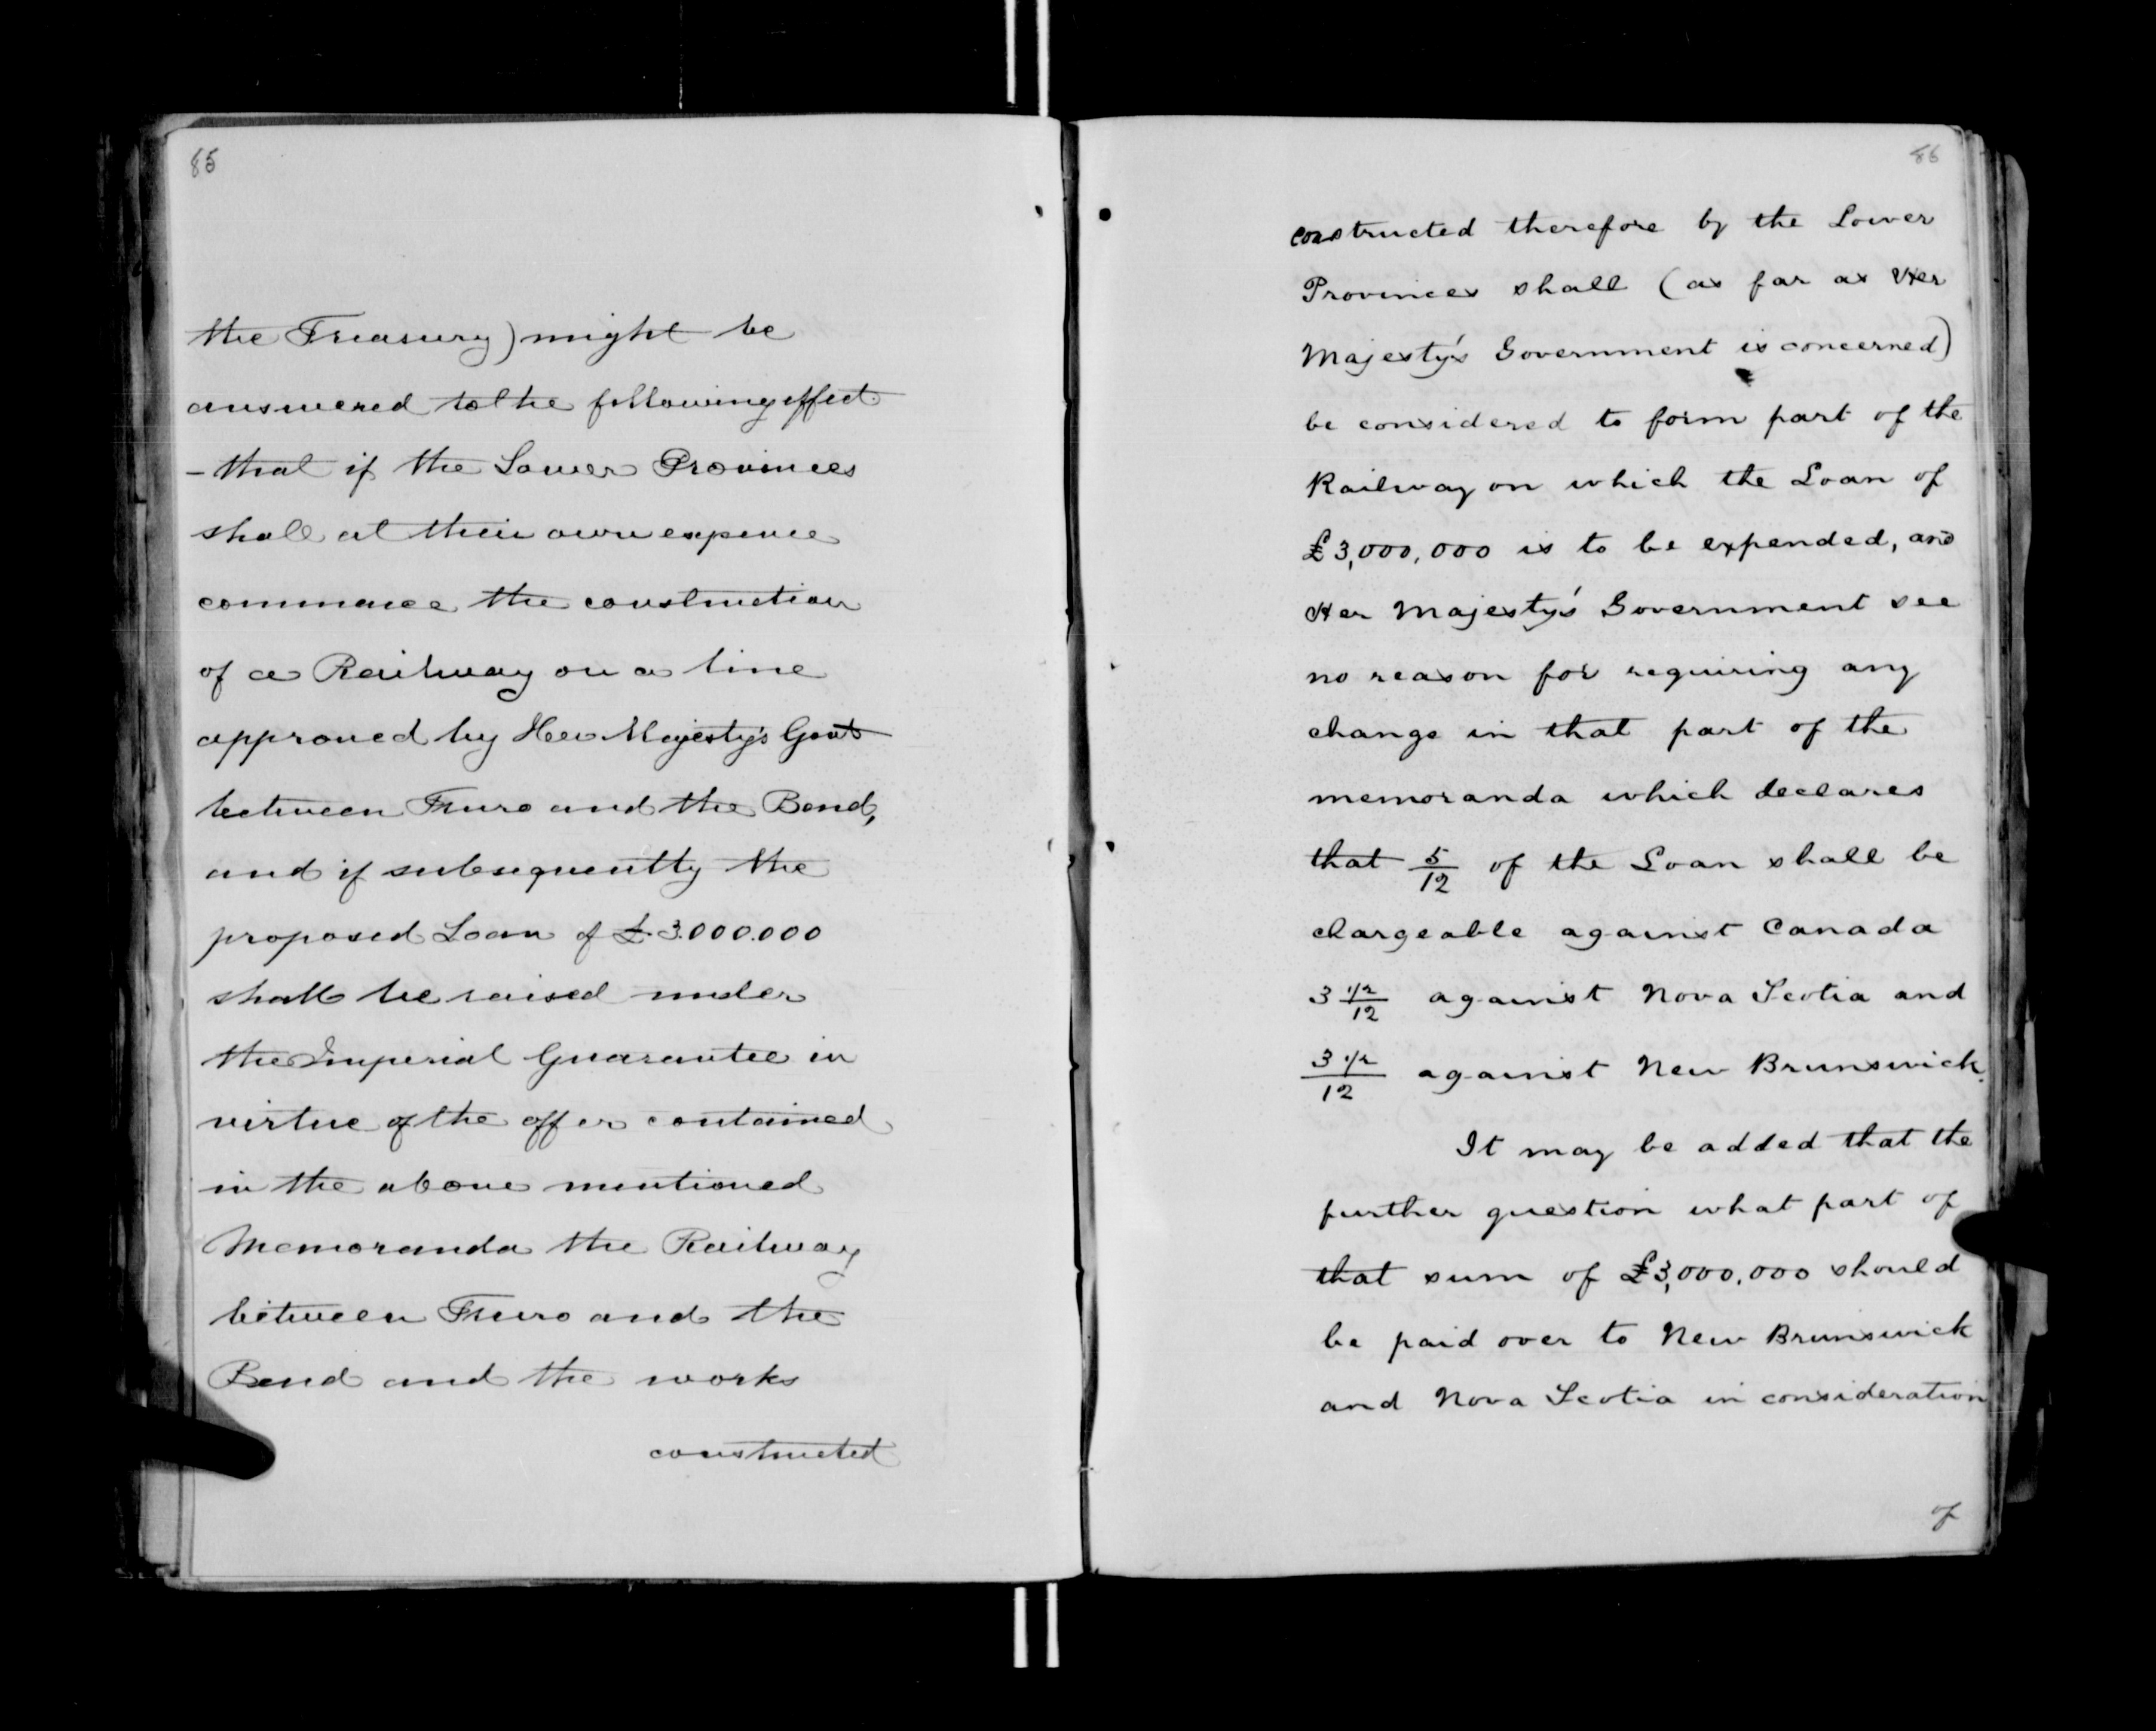 85
the Treasury) might be
answered to the following effect
- that if the Lower Provinces
shall at their own expence
commence the construction
of a Railway on a line
approved by Her Majesty's Govt
between Truro and the Bend,
and if subsequently the
proposed Loan of £.3.000.000
shall be raised under
the Imperial Guarantee in
virtue of the offer contained
in the above mentioned
Memoranda the Railway
between Truro and the
Bend and the works
constructed
86
constructed therefore by the Lower
Provinces shall (as far as Her
Majesty's Government is concerned)
be considered to form part of the
Railway on which the Loan of
£3,000,000 is to be expended, and
Her Majesty's Government see
no reason for requiring any
change in that part of the
memoranda which declares
that 5/12 of the Loan shall be
chargeable against Canada
3 1/2/12 against Nova Scotia and
3 1/2/12 against New Brunswick.
It may be added that the
further question what part of
that sum of £3,000,000 should
be paid over to New Brunswick
and Nova Scotia in consideration
of